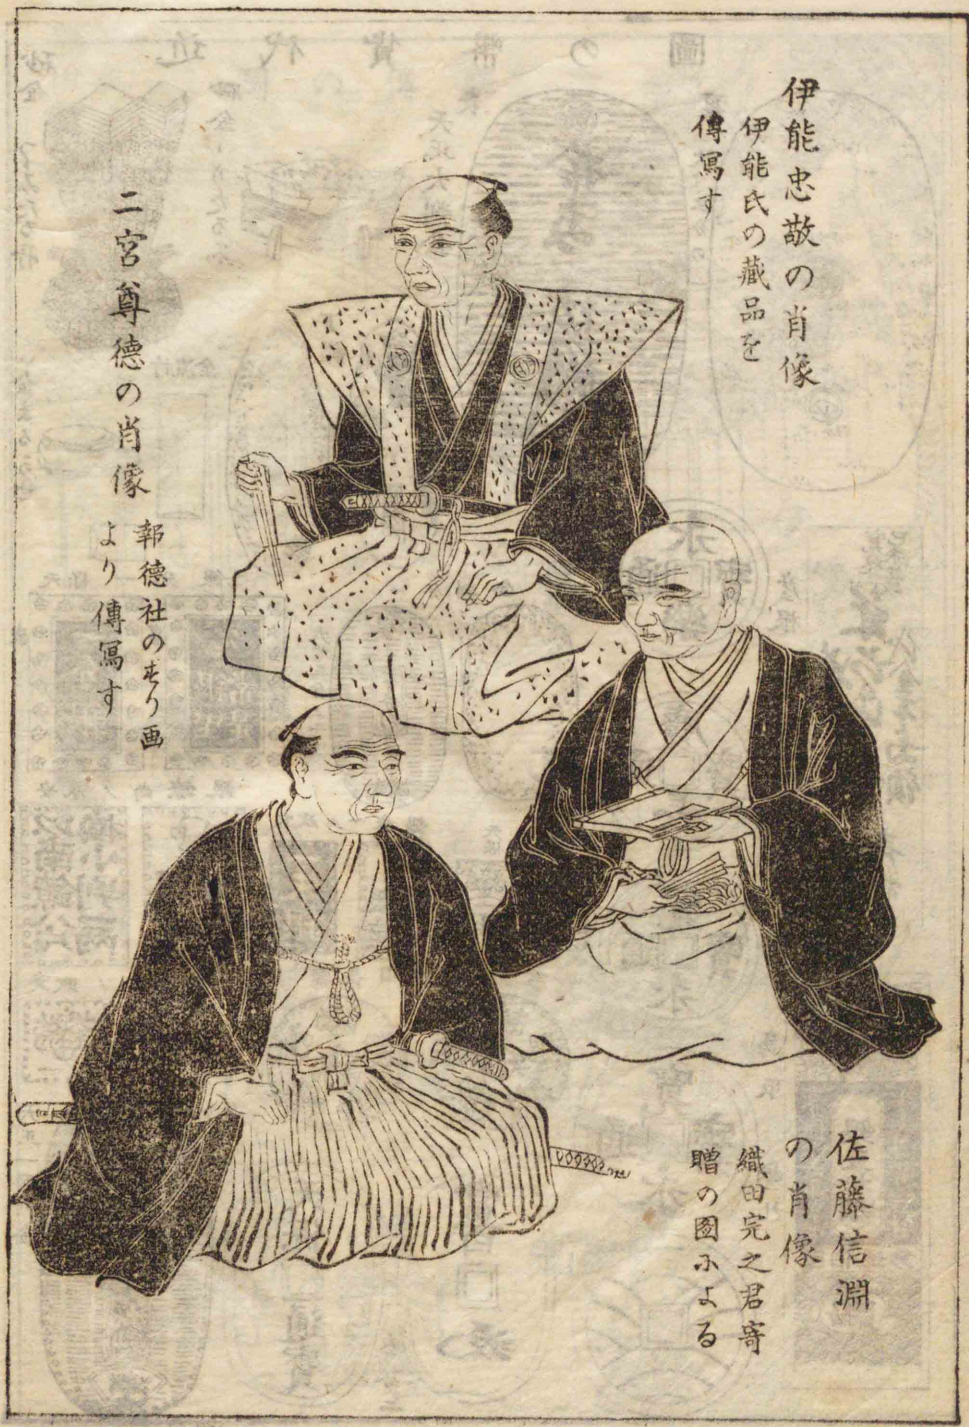 伊能忠敬の肖像
伊能氏の藏品を
傳冩す
二宮尊德の肖像
報德社のすり画
より傳冩す
佐藤信淵
の肖像
織田完之君寄
贈の圖による